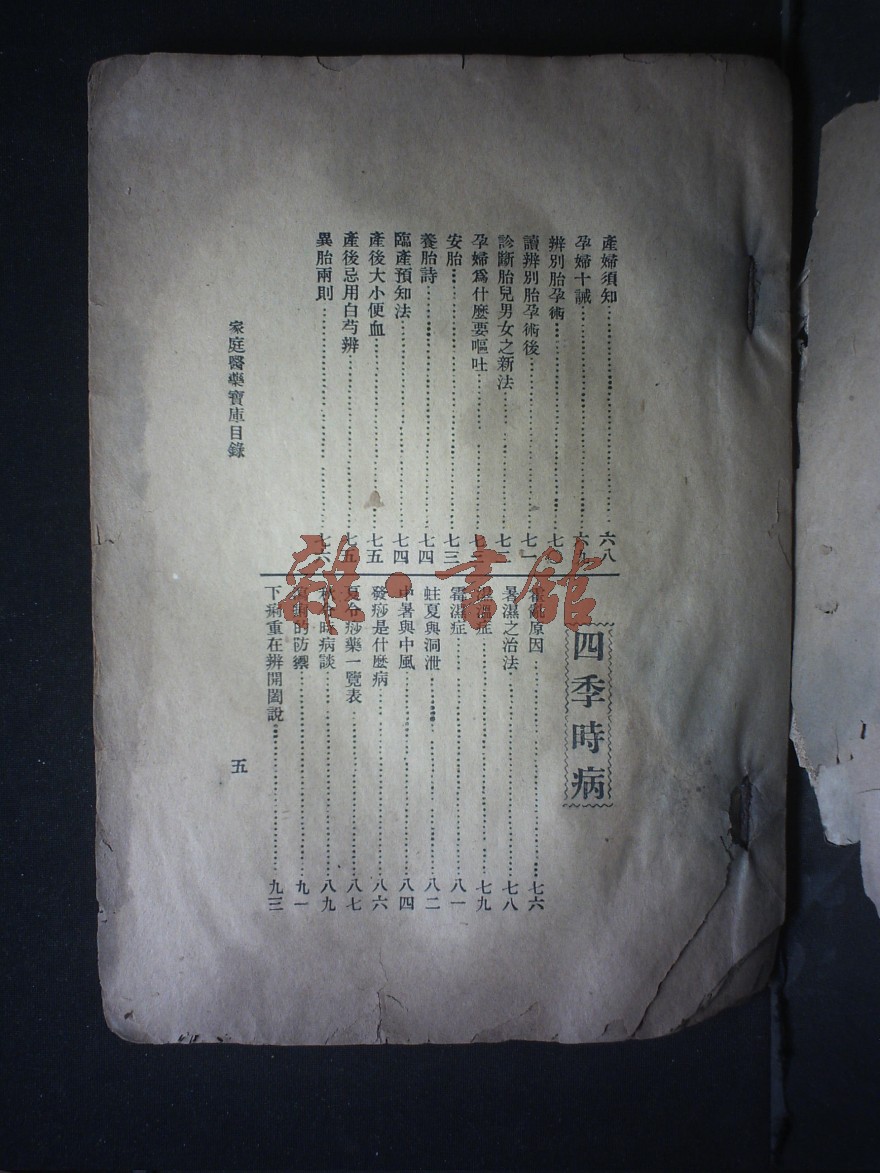 產婦須知⋯⋯六八
孕婦十誡⋯⋯六九
辨別胎孕術⋯⋯七
讀辨別胎孕術後⋯⋯七一
診斷胎兒男女之新法⋯⋯七二
孕婦爲什麽要嘔吐⋯⋯七三
安胎⋯⋯七三
養胎詩⋯⋯七四
臨產預知法⋯⋯七四
產後大小便血⋯⋯七五
產後忌用白芍辨⋯⋯七五
異胎兩則⋯⋯七六
四季時病
霍亂原因⋯⋯七六
暑濕之治法⋯⋯七八
濕溫症⋯⋯七九
霉濕症⋯⋯八一
蛀夏與洞泄⋯⋯八二
中暑與中風⋯⋯八四
發痧是什麽病⋯⋯八六
夏令痧藥一覽表⋯⋯八七
秋令時病談⋯⋯八九
的防禦⋯⋯九一
下痢重在辨開闔說⋯⋯九三
家庭醫藥寶庫目錄
五
雜·書館